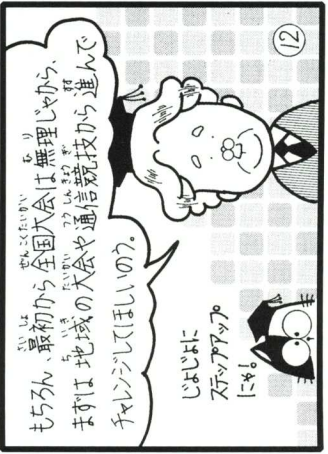 ⑫
もちろん、最初から全国大会は無理じゃから、
まずは地域の大会や通信競技から進んで
チャレンジしてほしいのう。
じょじょに
ステップアップ
にゃ!